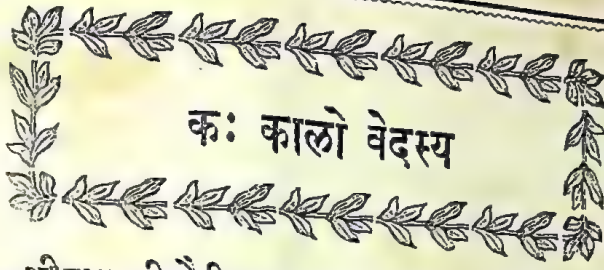 कः कालो वेदस्य